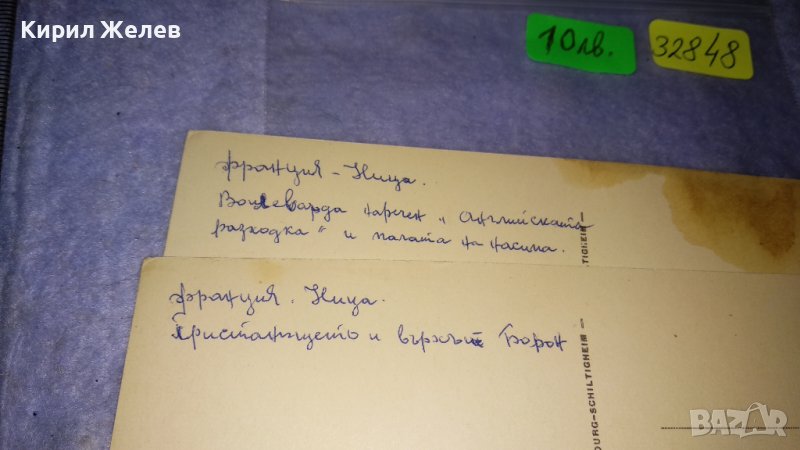 Кирил Желев
10лв.
32848
Франция - Ница.
Булеварда наречен „Английската
разходка" и палата на казина.
TIGHEIM —
Франция. Ница.
Пристанището и върхът Борон
OURG-SCHILTIGHEIM —
BAZAR